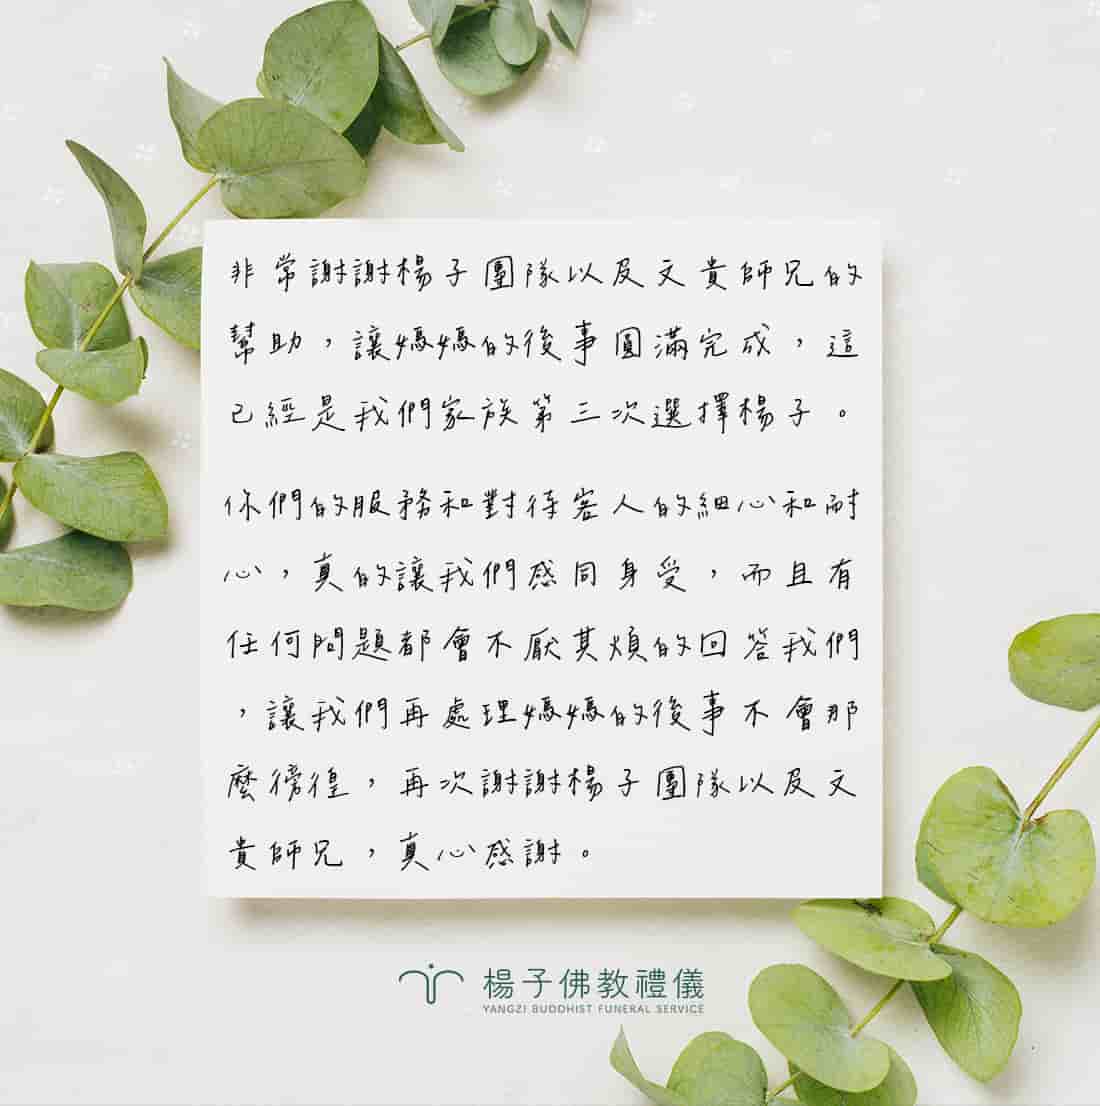 非常謝謝楊子團隊以及文貴師兄的
幫助，讓媽媽的後事圓滿完成，這
已經是我們家族第三次選擇楊子。
你們的服務和對待客人的細心和耐
心，真的讓我們感同身受，而且有
任何問題都會不厭其煩的回答我們
，讓我們再處理媽媽的後事不會那
麼徬徨，再次謝謝楊子團隊以及文
貴師兄，真心感謝。
楊子佛教禮儀
YANGZI BUDDHIST FUNERAL SERVICE